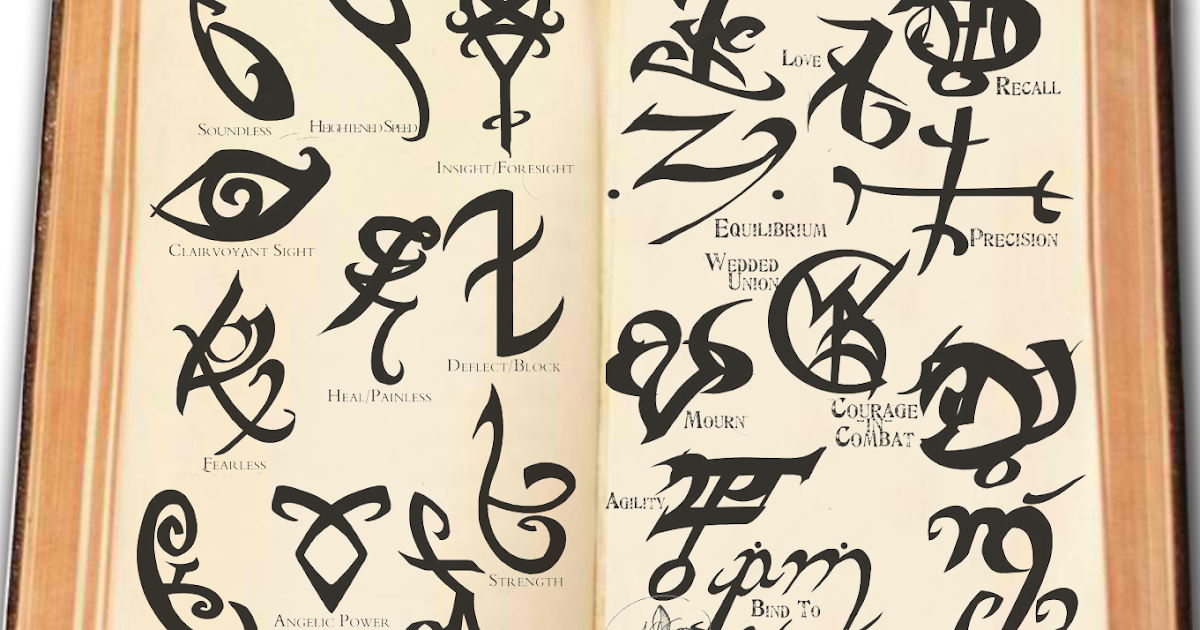 Soundless
Heightened Speed
Insight/Foresight
Clairvoyant Sight
Deflect/Block
Heal/Painless
Fearless
Strength
Angelic Power
Love
Recall
Equilibrium
Precision
Wedded
Union
Mourn
Courage
-in-
Combat
Agility
Bind To